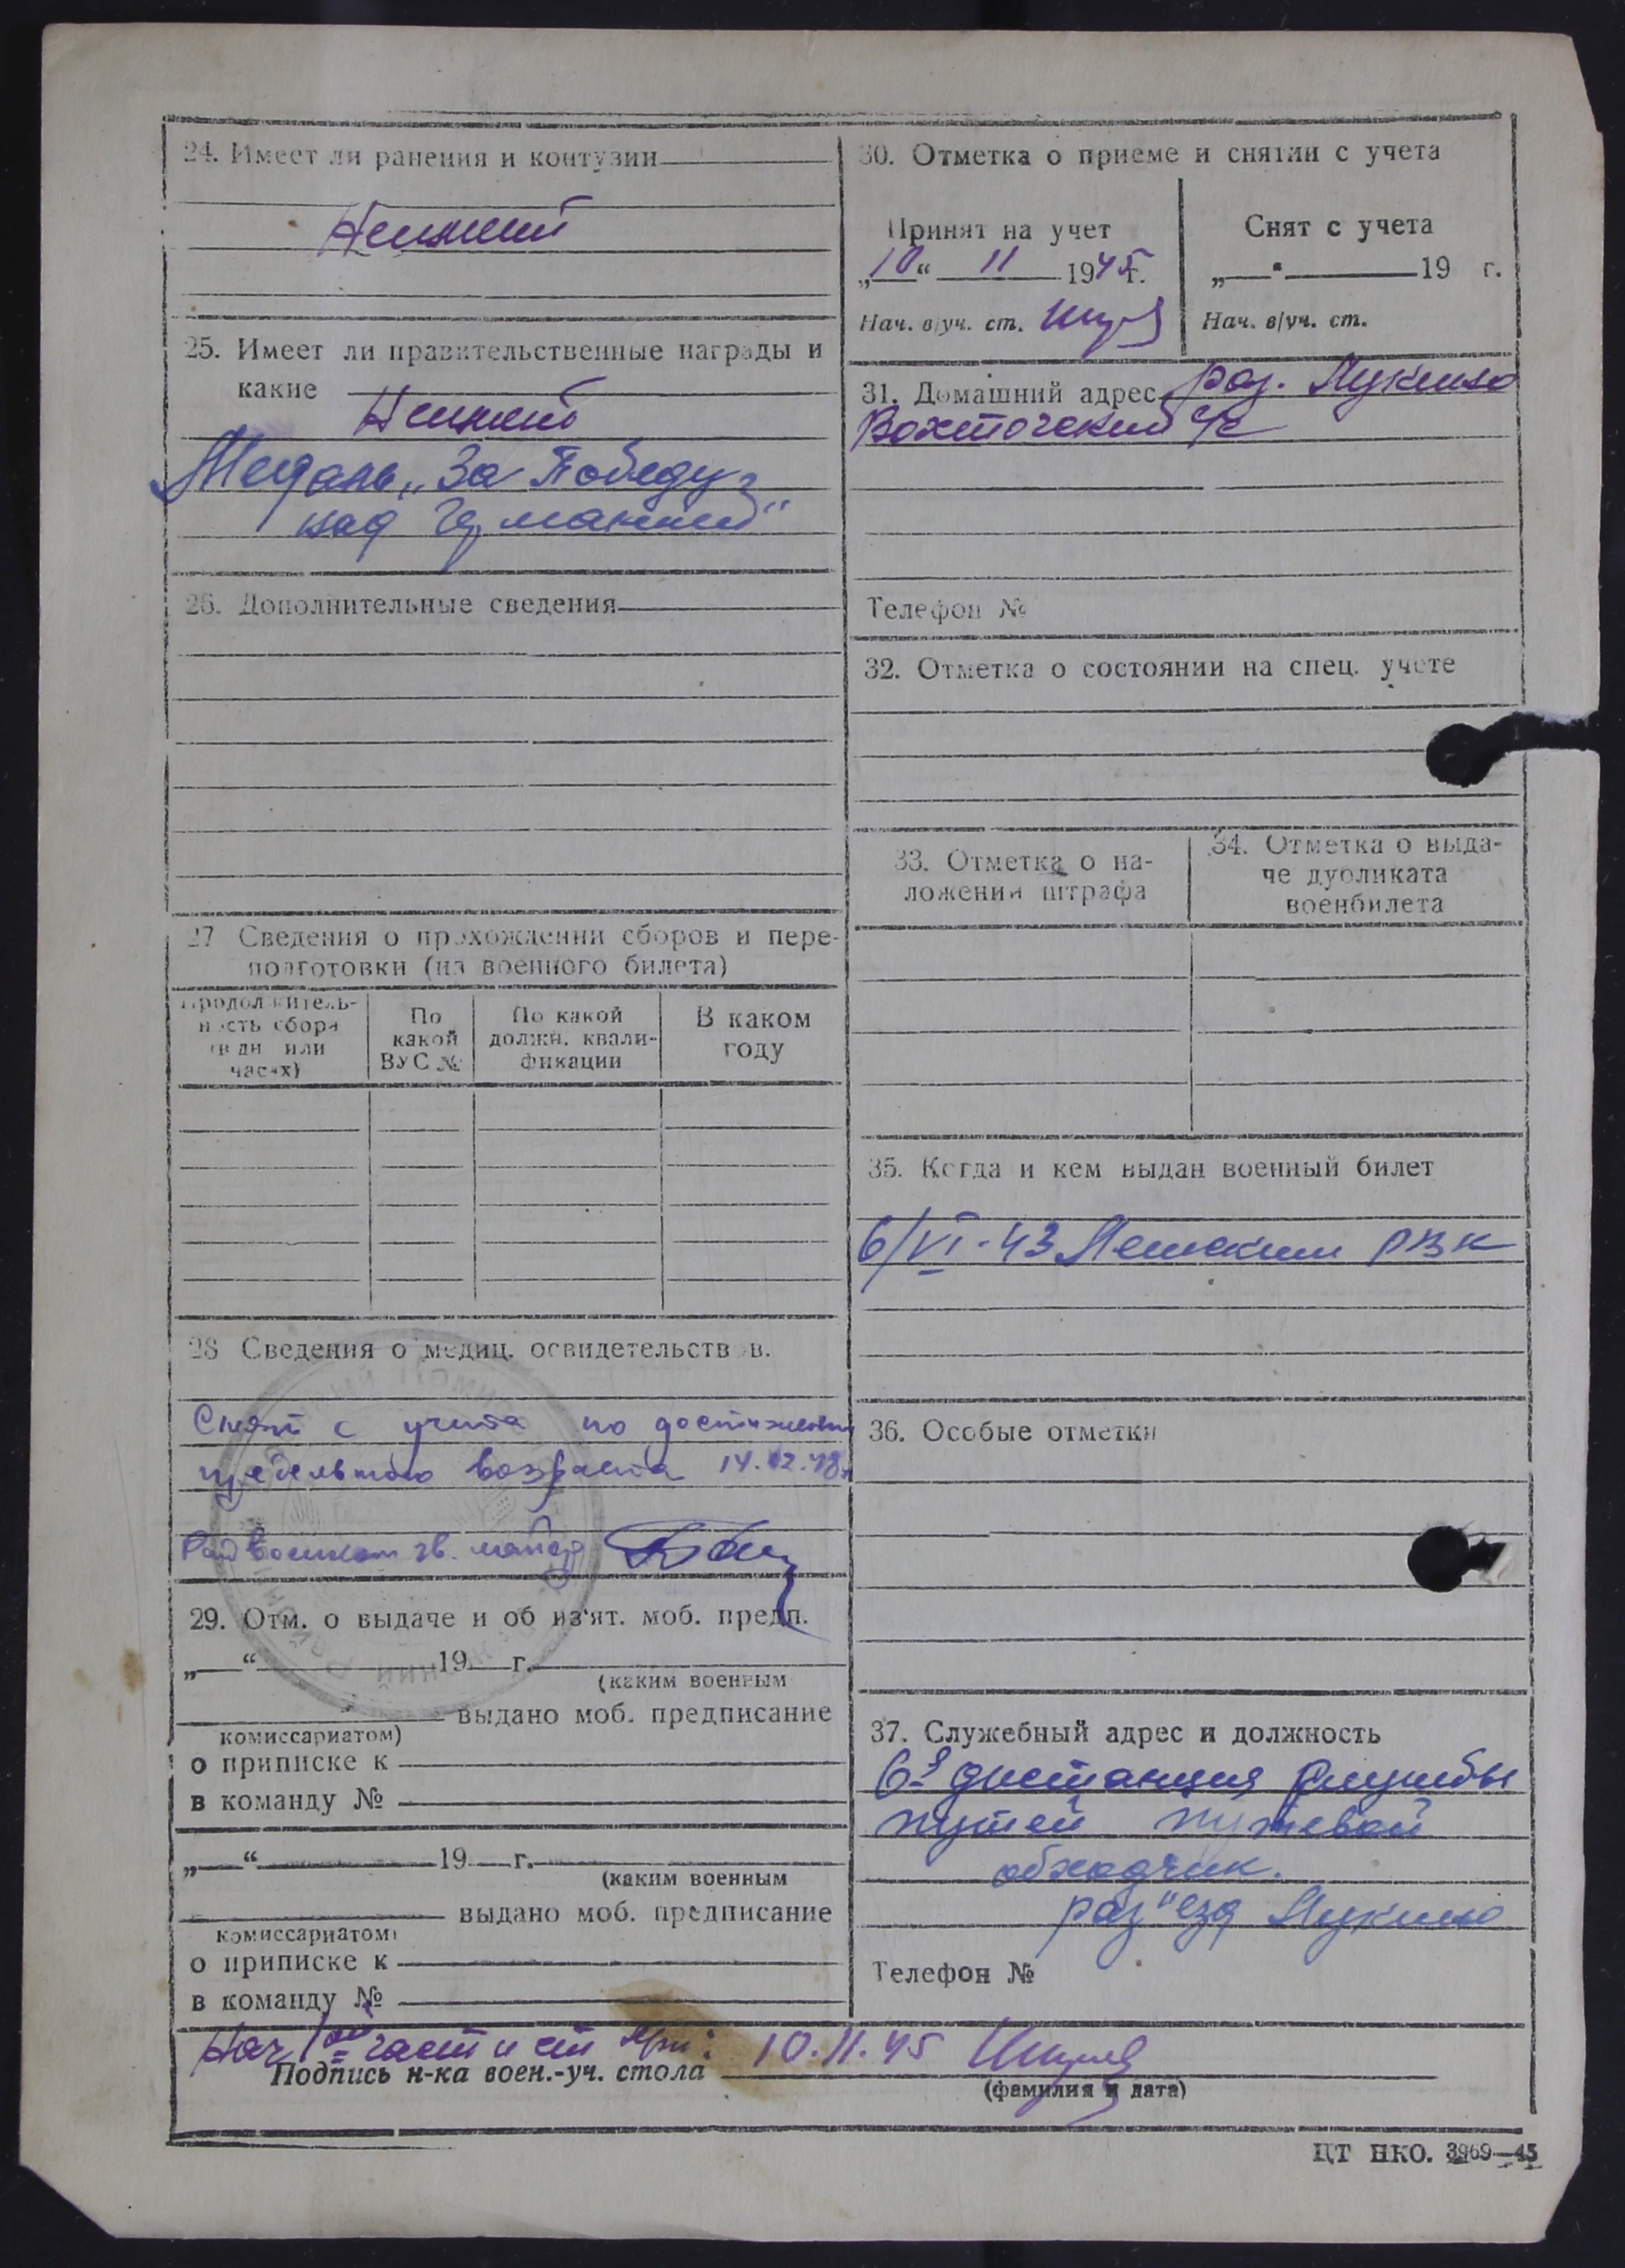 24. Имеет ли ранения и контузии
Неимеет
25. Имеет ли правительственные награды и
какие
Неимеет
Медаль „За Победу
над Германией"
26. Дополнительные сведения
27 Сведения о прохождении сборов и пере-
подготовки (из военного билета)
Продолжитель-
ность сбора
(в дн или
часах)
По
какой
ВУС №
По какой
должн. квали-
фикации
В каком
году
28 Сведения о медиц. освидетельствов.
Снят с учета по достижении
предельного возраста 14.02.48г
Райвоенком гв. майор
29. Отм. о выдаче и об из'ят. моб. предп.
„ “ 19 г.
(каким военным
выдано моб. предписание
комиссариатом)
о приписке к
в команду №
„ “ 19 г.
(каким военным
выдано моб. предписание
комиссариатом)
о приписке к
в команду №
30. Отметка о приеме и снятии с учета
Принят на учет
„10“ 11 1945г.
Нач. в/уч. ст.
Снят с учета
„ “ 19 г.
Нач. в/уч. ст.
31. Домашний адрес раз. Лукино
с/с
Телефон №
32. Отметка о состоянии на спец. учете
33. Отметка о на-
ложении штрафа
34. Отметка о выда-
че дубликата
военбилета
35. Когда и кем выдан военный билет
6/VI-43 РВК
36. Особые отметки
37. Служебный адрес и должность
6-я дистанция службы
путей путевой
обходчик.
раз"езд Лукино
Телефон №
Нач 1ой части 10.11.45
Подпись н-ка воен.-уч. стола
(фамилия и дата)
ЦТ НКО. 3969—45